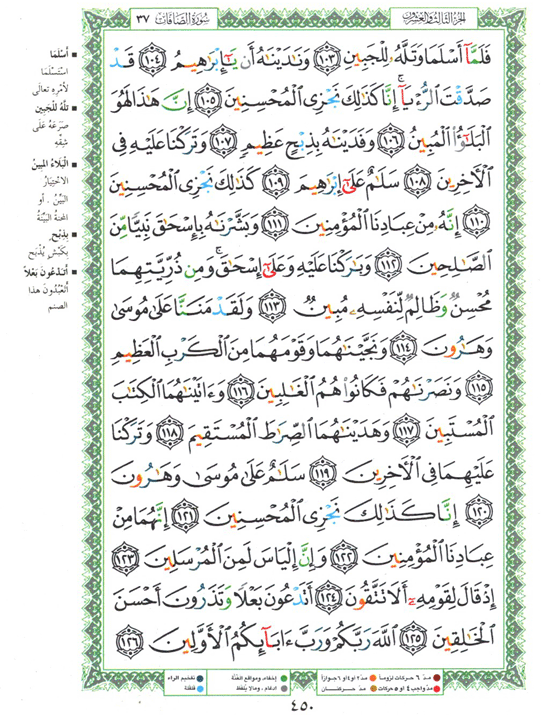 الجزء الثالث والعشرون
سورة الصافات ٣٧
فَلَمَّآ أَسْلَمَا وَتَلَّهُۥ لِلْجَبِينِ ١٠٣ وَنَٰدَيْنَٰهُ أَن يَٰٓإِبْرَٰهِيمُ ١٠٤ قَدْ
صَدَّقْتَ ٱلرُّءْيَآ ۚ إِنَّا كَذَٰلِكَ نَجْزِى ٱلْمُحْسِنِينَ ١٠٥ إِنَّ هَٰذَا لَهُوَ
ٱلْبَلَٰٓؤُا۟ ٱلْمُبِينُ ١٠٦ وَفَدَيْنَٰهُ بِذِبْحٍ عَظِيمٍ ١٠٧ وَتَرَكْنَا عَلَيْهِ فِى
ٱلْءَاخِرِينَ ١٠٨ سَلَٰمٌ عَلَىٰٓ إِبْرَٰهِيمَ ١٠٩ كَذَٰلِكَ نَجْزِى ٱلْمُحْسِنِينَ
١١٠ إِنَّهُۥ مِنْ عِبَادِنَا ٱلْمُؤْمِنِينَ ١١١ وَبَشَّرْنَٰهُ بِإِسْحَٰقَ نَبِيًّا مِّنَ
ٱلصَّٰلِحِينَ ١١٢ وَبَٰرَكْنَا عَلَيْهِ وَعَلَىٰٓ إِسْحَٰقَ ۚ وَمِن ذُرِّيَّتِهِمَا
مُحْسِنٌ وَظَالِمٌ لِّنَفْسِهِۦ مُبِينٌ ١١٣ وَلَقَدْ مَنَنَّا عَلَىٰ مُوسَىٰ
وَهَٰرُونَ ١١٤ وَنَجَّيْنَٰهُمَا وَقَوْمَهُمَا مِنَ ٱلْكَرْبِ ٱلْعَظِيمِ
١١٥ وَنَصَرْنَٰهُمْ فَكَانُوا۟ هُمُ ٱلْغَٰلِبِينَ ١١٦ وَءَاتَيْنَٰهُمَا ٱلْكِتَٰبَ
ٱلْمُسْتَبِينَ ١١٧ وَهَدَيْنَٰهُمَا ٱلصِّرَٰطَ ٱلْمُسْتَقِيمَ ١١٨ وَتَرَكْنَا
عَلَيْهِمَا فِى ٱلْءَاخِرِينَ ١١٩ سَلَٰمٌ عَلَىٰ مُوسَىٰ وَهَٰرُونَ
١٢٠ إِنَّا كَذَٰلِكَ نَجْزِى ٱلْمُحْسِنِينَ ١٢١ إِنَّهُمَا مِنْ
عِبَادِنَا ٱلْمُؤْمِنِينَ ١٢٢ وَإِنَّ إِلْيَاسَ لَمِنَ ٱلْمُرْسَلِينَ ١٢٣
إِذْ قَالَ لِقَوْمِهِۦٓ أَلَا تَتَّقُونَ ١٢٤ أَتَدْعُونَ بَعْلًا وَتَذَرُونَ أَحْسَنَ
ٱلْخَٰلِقِينَ ١٢٥ ٱللَّهَ رَبَّكُمْ وَرَبَّ ءَابَآئِكُمُ ٱلْأَوَّلِينَ ١٢٦
■ أَسْلَمَا
اسْتَسْلَمَا
لأمْرِهِ تعالى
■ تَلَّهُ لِلْجَبِينِ
صَرَعَهُ عَلَى
شِقِّهِ
■ الْبَلَاءُ المُبِينُ
الاخْتِبَارُ
البَيِّنُ. أو
المحنَةُ البَيِّنَةُ
■ بِذِبْحٍ
بِكَبْشٍ يُذْبَح
■ أتَدْعُونَ بَعْلاً
أتَعْبُدُونَ هذا
الصنم
مدّ ٦ حركات لزوماً
مدّ ٢ أو ٤ أو ٦ جوازاً
إخفاء، ومواقع الغُنَّة
تفخيم الراء
مدّ واجب ٤ أو ٥ حركات
مدّ حركتان
ادغام، ومالا يُلفَظ
قلقلة
٤٥٠